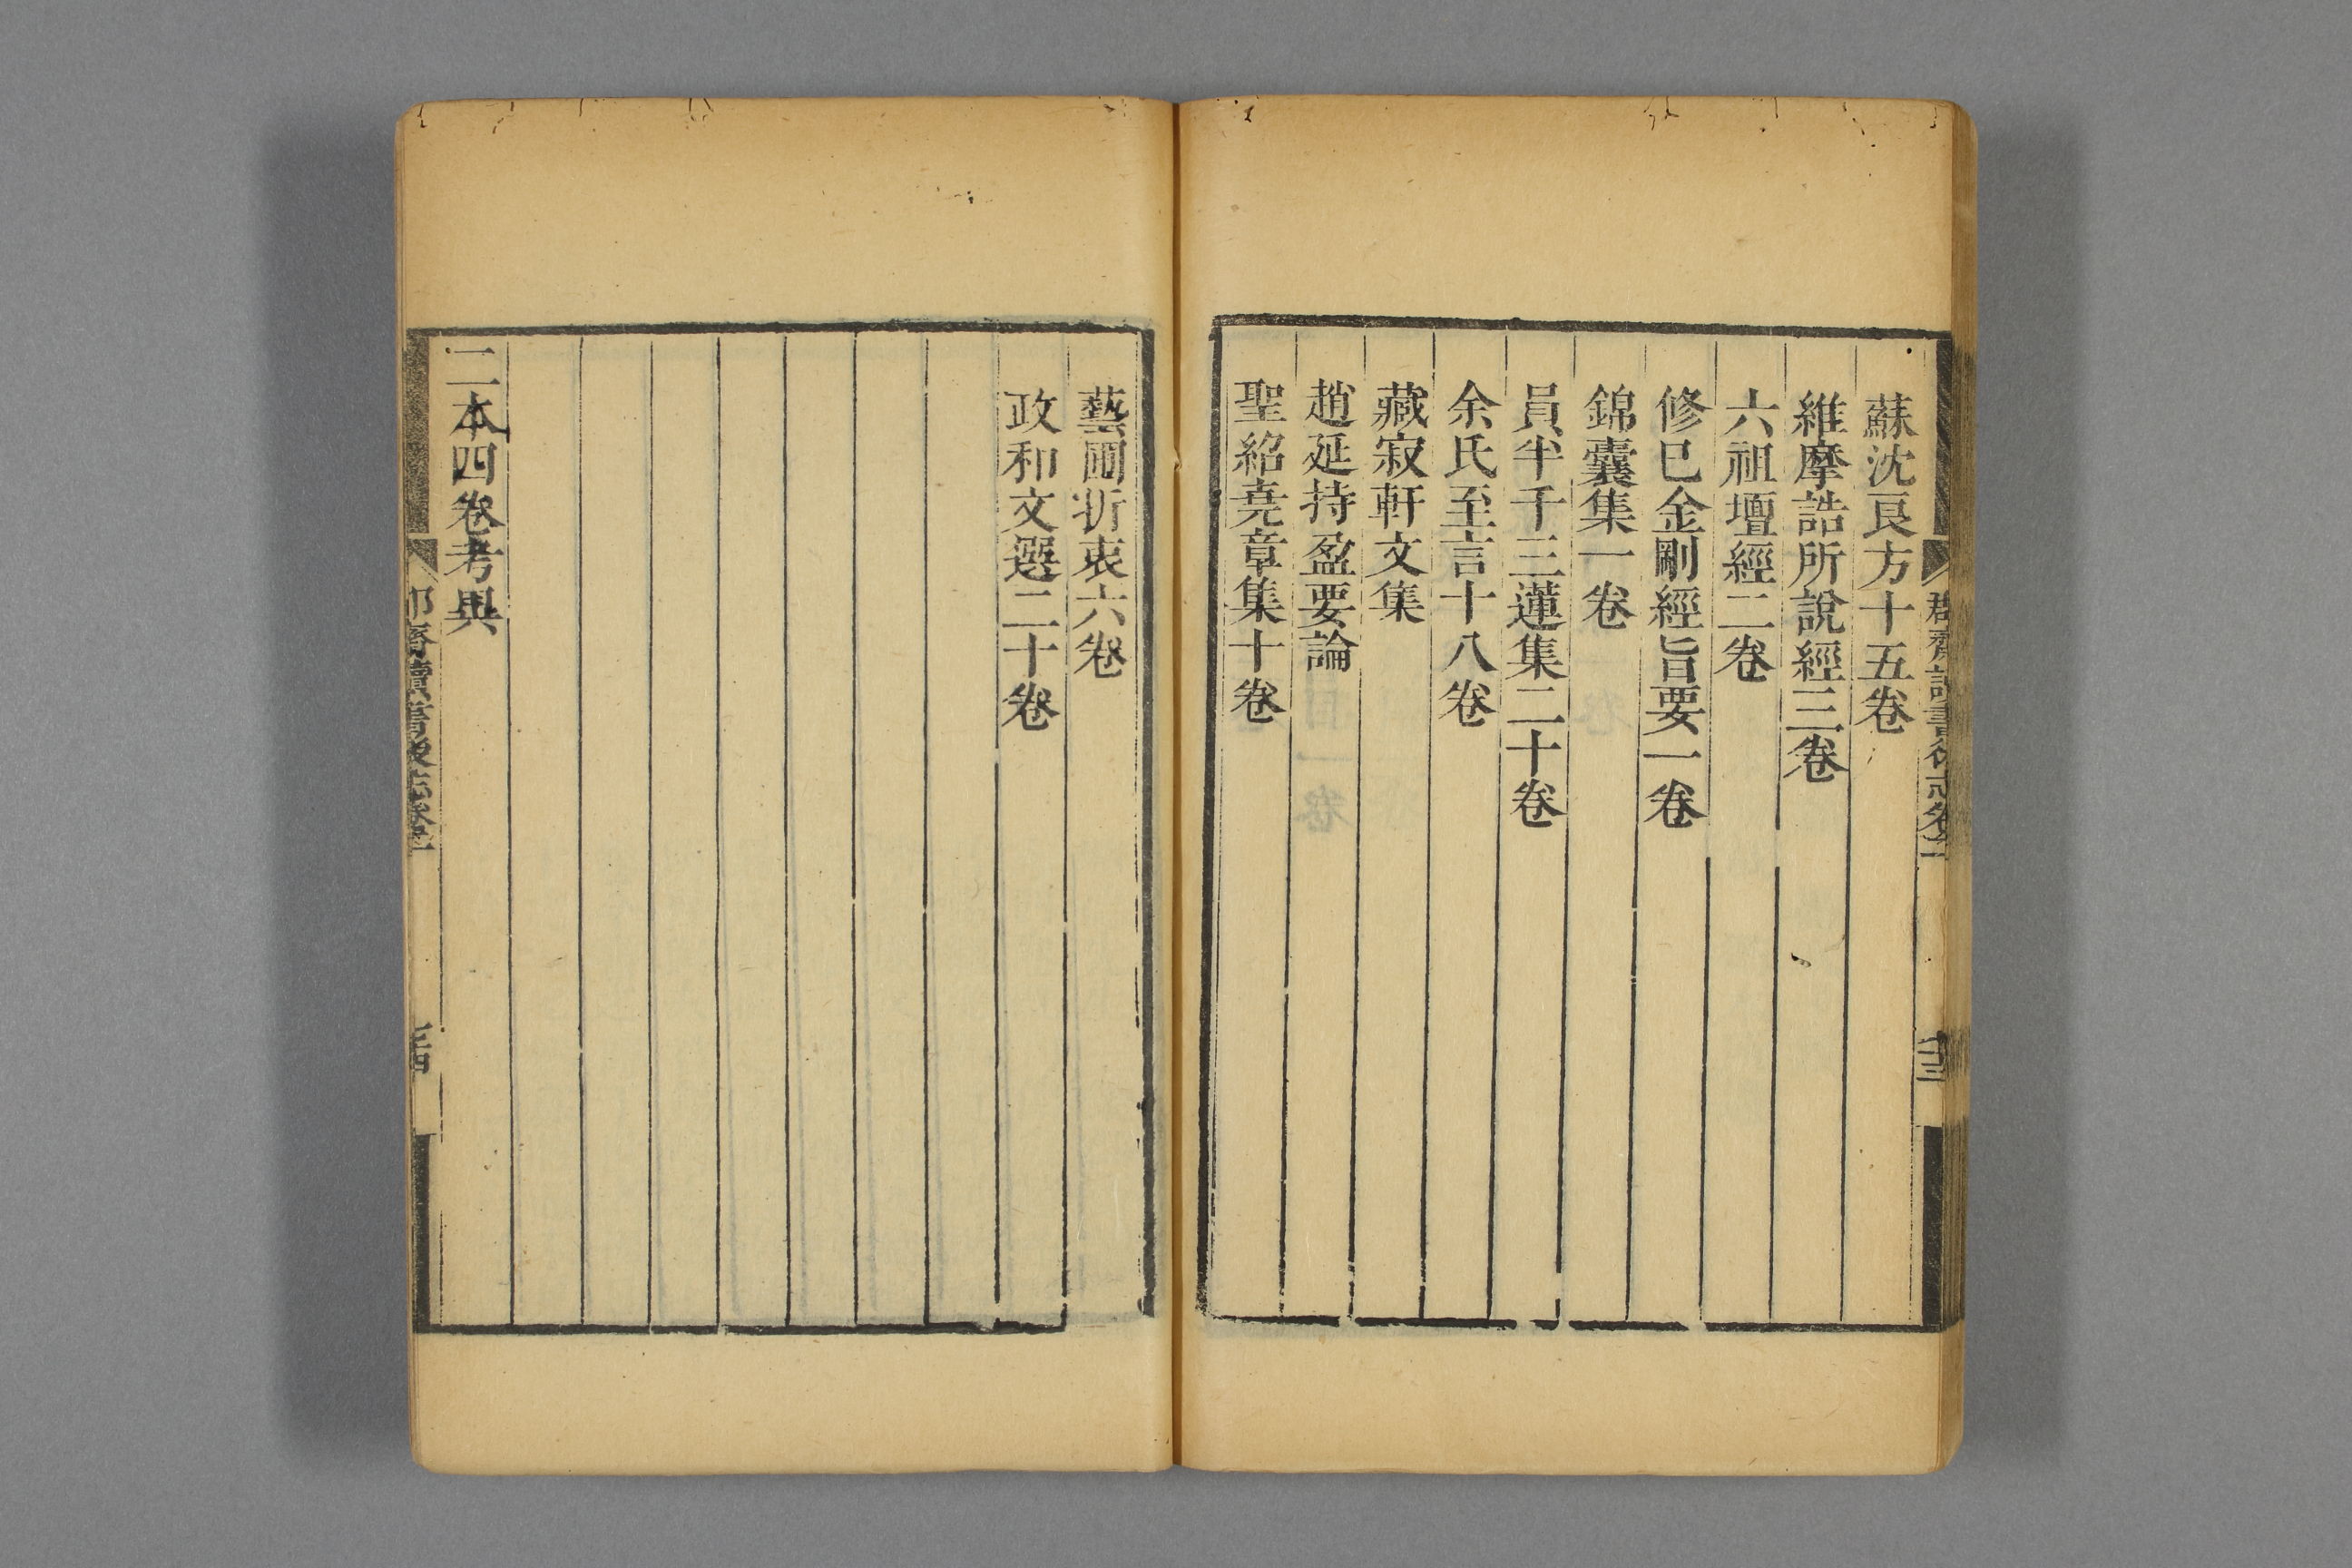 蘇沈良方十五卷
維摩詰所說經三卷
六祖壇經二卷
修巳金剛經旨要一卷
錦囊集一卷
員半千三蓮集二十卷
余氏至言十八卷
藏寂軒文集
趙延持盈要論
聖紹堯章集十卷
藝圃折衷六卷
政和文選二十卷
二本四卷考異